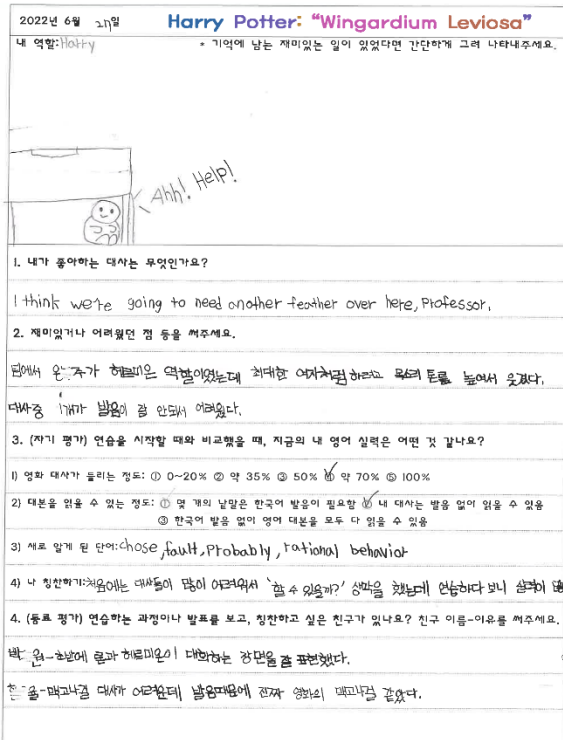 2022년 6월 27일 Harry Potter: "Wingardium Leviosa"
내 역할: Harry * 기억에 남는 재미있는 일이 있었다면 간단하게 그려 나타내주세요.
Ahh! Help!
1. 내가 좋아하는 대사는 무엇인가요?
I think we're going to need another feather over here, Professor.
2. 재미있거나 어려웠던 점 등을 써주세요.
팀에서 주가 헤르미온 역할이였는데 최대한 여자처럼 하려고 목소리 톤을 높여서 웃겼다.
대사중 1개가 발음이 잘 안되서 어려웠다.
3. (자기 평가) 연습을 시작할 때와 비교했을 때, 지금의 내 영어 실력은 어떤 것 같나요?
1) 영화 대사가 들리는 정도: ① 0~20% ② 약 35% ③ 50% ④ 약 70% ⑤ 100%
2) 대본을 읽을 수 있는 정도: ① 몇 개의 낱말은 한국어 발음이 필요함 ② 내 대사는 발음 없이 읽을 수 있음
③ 한국어 발음 없이 영어 대본을 모두 다 읽을 수 있음
3) 새로 알게 된 단어: chose, fault, Probably, rational behavior
4) 나 칭찬하기: 처음에는 대사들이 많이 어려워서 '할 수 있을까?' 생각을 했는데 연습하다 보니 실력이
4. (동료 평가) 연습하는 과정이나 발표를 보고, 칭찬하고 싶은 친구가 있나요? 친구 이름-이유를 써주세요.
박 원-초반에 론과 헤르미온이 대화하는 장면을 잘 표현했다.
율-맥고나걸 대사가 어려운데 발음때문에 진짜 영화의 맥고나걸 같았다.